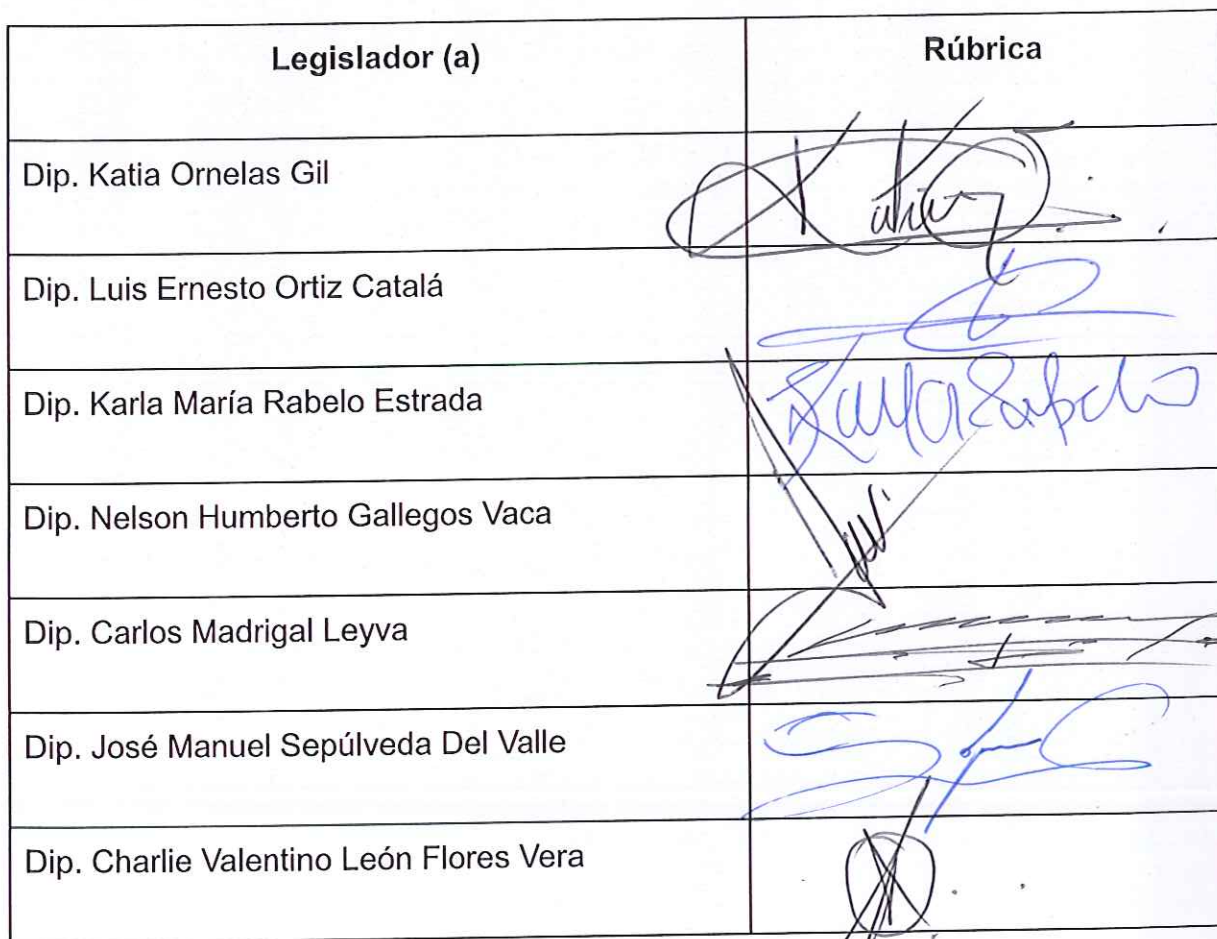 Legislador (a) Rúbrica
Dip. Katia Ornelas Gil
Dip. Luis Ernesto Ortiz Catalá
Dip. Karla María Rabelo Estrada
Dip. Nelson Humberto Gallegos Vaca
Dip. Carlos Madrigal Leyva
Dip. José Manuel Sepúlveda Del Valle
Dip. Charlie Valentino León Flores Vera